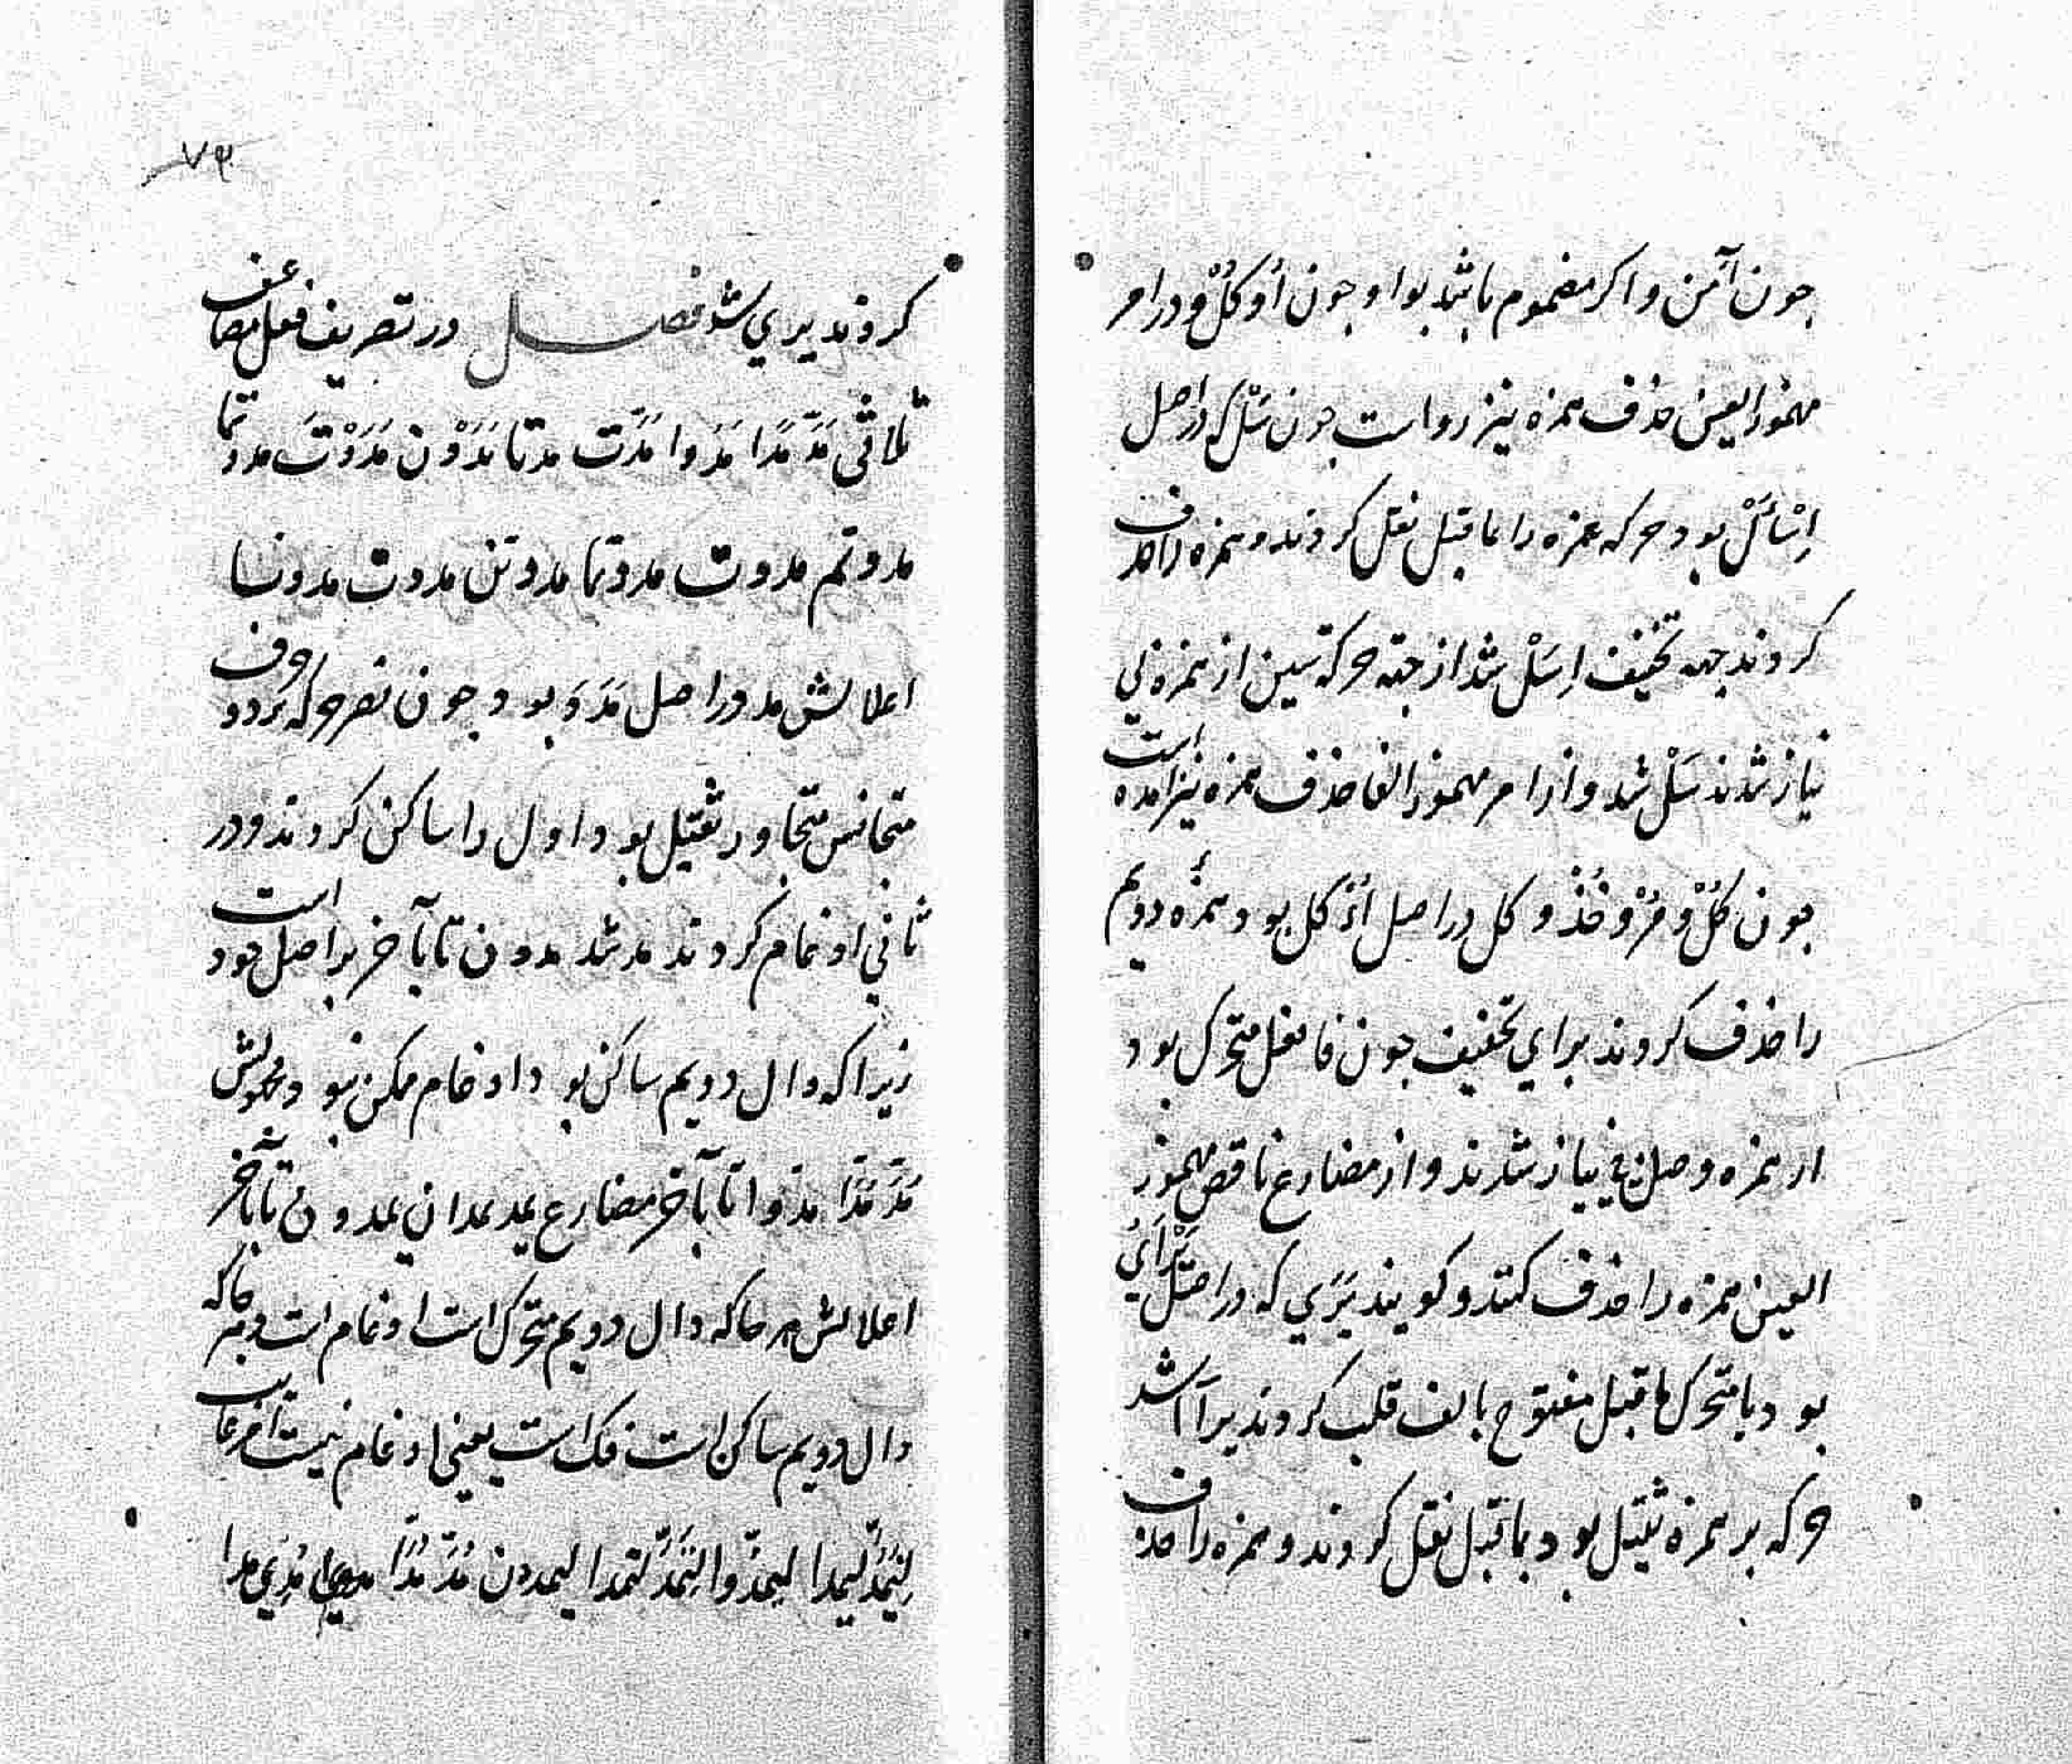 جون آمن واكر مضموم باشد بواو جون اُوكُلْ و در امر
مهموز العين حذف همزه نيز رواست جون سَلْ كه در اصل
اِسْأَلْ بود حركه همزه را بما قبل نقل كردند و همزه را حذف
كردند جهه تخفيف اِسَلْ شد از جهة حركة سين از همزه بي
نياز شدند سَلْ شد و از امر مهموز الفا حذف همزه نيز امده است
جون كُلْ و مُرْ و خُذْ و كل در اصل اُءْكل بود همزۀ دويم
را حذف كردند براي تخفيف جون فا فعل متحرك بود
از همزه وصل بي نياز شدند و از مضارع ناقص مهموز
العين همزه را حذف كنند و كويند يَرَي كه در اصل يَرْأَيُ
بود يا متحرك ما قبل مفتوح بالف قلب كردند يرأا شد
حركه بر همزه ثقيل بود بما قبل نقل كردند و همزه را حذف
٧٣
كردند يري شد فصل در تصريف فعل مضاعف
ثلاثي مَدَّ مَدَّا مَدّوا مَدَّت مدتا مَدَدْن مَدَدْتَ مددتما
مددتم مددت مددتما مددتن مددت مددنا
اعلالش مد در اصل مَدَدَ بود جون نصر حركه بر دو حرف
متجانس متجاور ثقيل بود اول را ساكن كردند و در
ثاني ادغام كردند مد شد مددن تا بآخر بر اصل خود است
زيرا كه دال دويم ساكن بود ادغام ممكن نبود و مجهولش
مُدَّ مُدَّا مدّوا تا بآخر مضارع يمد يمدان يمدون تا بآخر
اعلالش هر جا كه دال دويم متحرك است ادغام است و هر جا كه
دال دويم ساكن است فك است يعني ادغام نيست امر غايب
لِيَمُدَّ ليمدا ليمدّوا لِتَمُدَّ لتمدا ليمددن مُدَّ مُدَّا مدوا مُدّي مدا